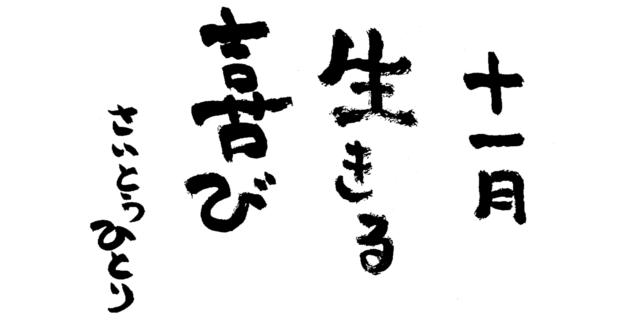 十一月
生きる
喜び
さいとうひとり